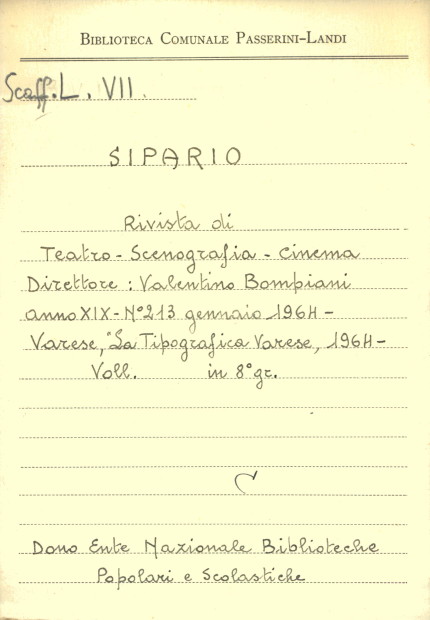 Biblioteca Comunale Passerini-Landi
Scaff. L. VII.
SIPARIO
Rivista di
Teatro - Scenografia - Cinema
Direttore : Valentino Bompiani
anno XIX - N° 213 gennaio 1964 -
Varese, "La Tipografica Varese, 1964 -
Voll. in 8° gr.
C
Dono Ente Nazionale Biblioteche
Popolari e Scolastiche